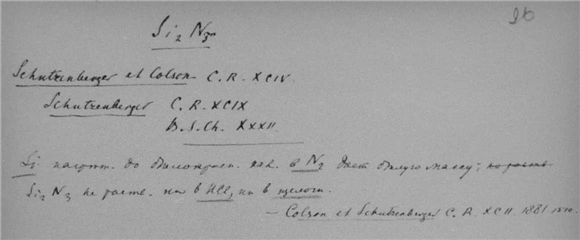 26
Si₂ N₃
Schutzenberger et Colson C. R. XCIV.
Schutzenberger C. R. XCIX
B. S. Ch. XXXII.
Si нагрет. до бѣлокален. кал. в N₂ дает белую массу;
Si₂ N₃ не раств. ни в HCl, ни в щелочи.
— Colson et Schutzenberger C. R. XCII. 1881